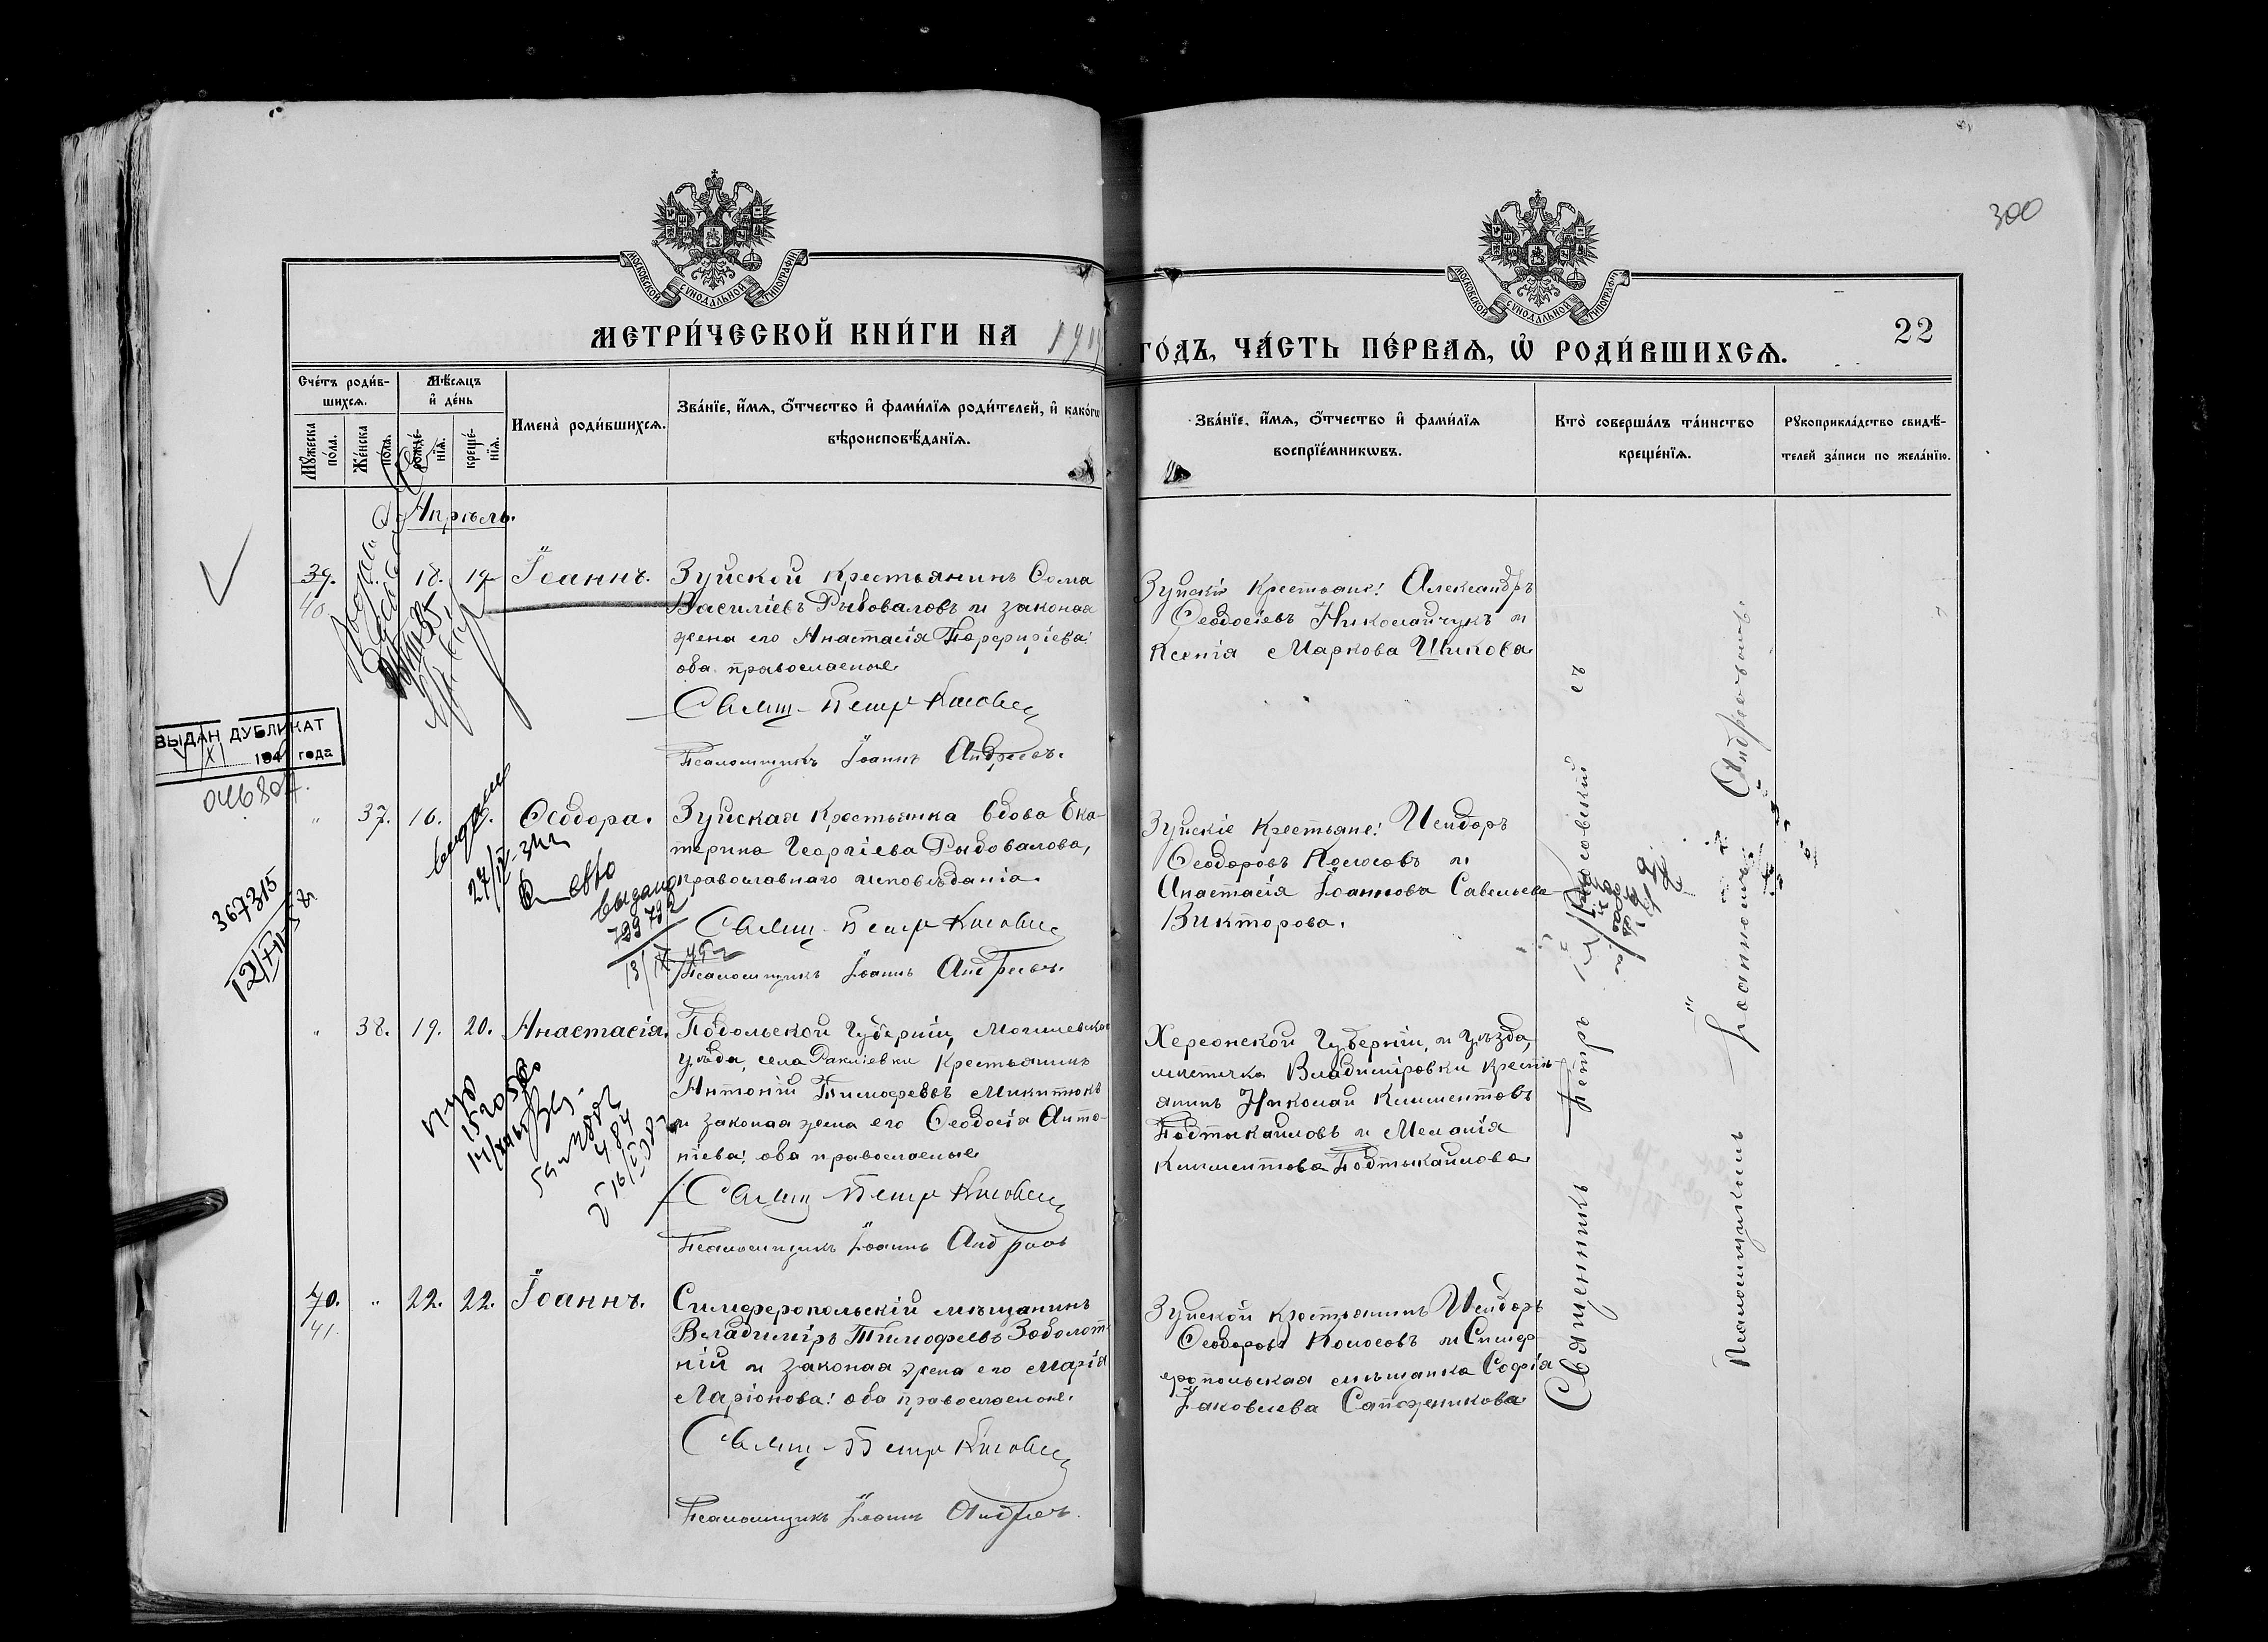 300
МОСКОВСКОЙ СУНОДАЛЬНОЙ ТИПОГРАФІИ
МОСКОВСКОЙ СУНОДАЛЬНОЙ ТИПОГРАФІИ
МЕТРИ́ЧЕСКОЙ КНИ́ГИ НА
ГО́ДЪ, ЧА́СТЬ ПЕ́РВАѦ, Ѡ҆ РОДИ́ВШИХСѦ.
22
Сче́тъ роди́в-
шихсѧ.
Мѣ́сѧцъ
и҆ де́нь
Мꙋ́жеска по́ла.
Же́нска по́ла.
рожде́-нїѧ.
креще́-нїѧ.
Имена̀ роди́вшихсѧ.
Зва́нїе, и҆́мѧ, о҆́тчество и҆ фами́лїѧ роди́телей, и҆ како́гѡ
вѣроисповѣ́данїѧ.
Зва́нїе, и҆́мѧ, о҆́тчество и҆ фами́лїѧ
воспрїе́мникѡвъ.
Кто̀ соверша́лъ та́инство
креще́нїѧ.
Рꙋкоприкла́дство свидѣ́-
телей за́писи по жела́нїю.
Апрѣль.
39.
40
18.
19
Іоаннъ.
Зуйской крестьянинъ Ѳома
Василіевъ Рыбоваловъ и законая
жена его Анастасія Порфиріева:
оба православные
Свящ. Петръ
Псаломщикъ Іоаннъ Андреевъ.
Зуйскіе крестьяне: Александръ
Ѳеодосіевъ Николайчукъ и
Ксенія Маркова Шикова
ВЫДАН ДУБЛИКАТ
194 года
37.
16.
Ѳеодора.
Зуйская крестьянка вдова Ека-
терина Георгіева Рыбовалова,
православнаго исповѣданія.
Свящ. Петръ
Псаломщикъ Іоаннъ Андреевъ.
выдано
799792
Зуйскіе крестьяне: Исидоръ
Ѳеодоровъ Колосовъ и
Анастасія Іоаннова Савельева
Викторова.
367315
38.
19.
20.
Анастасія.
Подольской губерніи, Могилевско
уѣзда, села Раклiевки крестьянинъ
Антоній Тимофеевъ Микитюкъ
и законая жена его Ѳеодосія Анто-
ніева: оба православные
Свящ. Петръ
Псаломщикъ Іоаннъ Андреевъ
Херсонской губерніи, и уѣзда,
мѣстечка Владиміровки кресть-
янинъ Николай Климентовъ
Подтыкайловъ и Меланія
Климентова Подтыкайлова
40.
41.
22.
22.
Іоаннъ.
Симферопольскій мѣщанинъ
Владиміръ Тимофеевъ Заболот-
ній и законая жена его Марія
Ларіонова: оба православные.
Свящ. Петръ
Псаломщикъ Іоаннъ Андреевъ.
Зуйской крестьянинъ Исидоръ
Ѳеодоровъ Колосовъ и Симф-
еропольская мѣщанка Софія
Іаковлева Сапожникова
Священникъ Петръ
Псаломщикъ Іоаннъ Андреевъ.